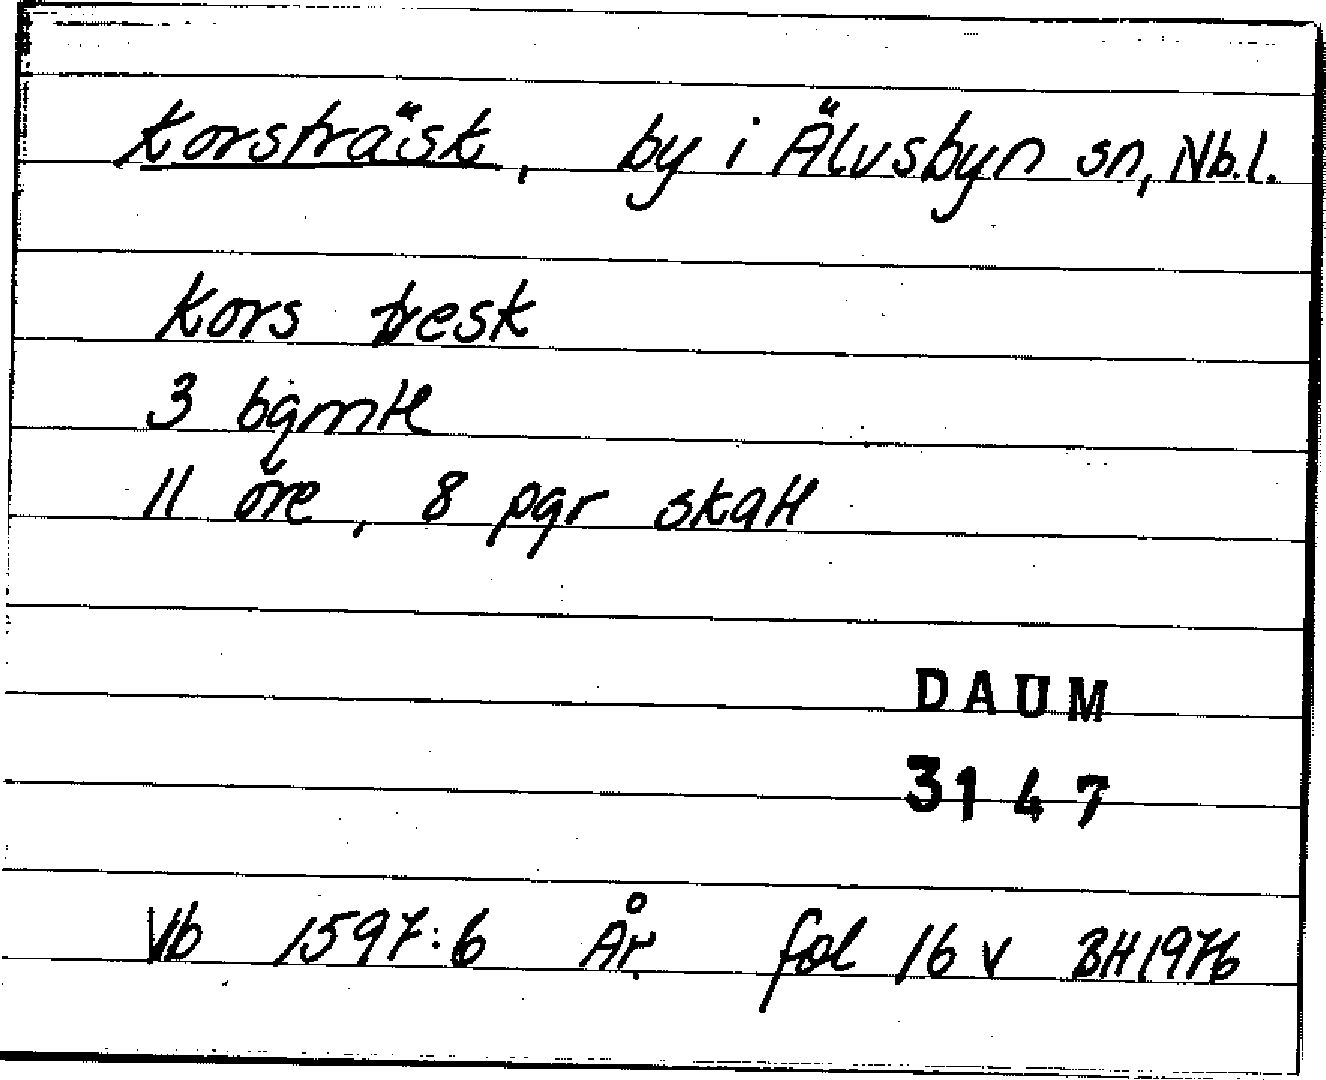 Korsträsk, by i Älvsbyn sn, Nb.l.
Kors tresk
3 bgmtl
11 öre, 8 pgr skatt
DAUM
3147
Vb 1597:6 År fol 16 v BH 1976